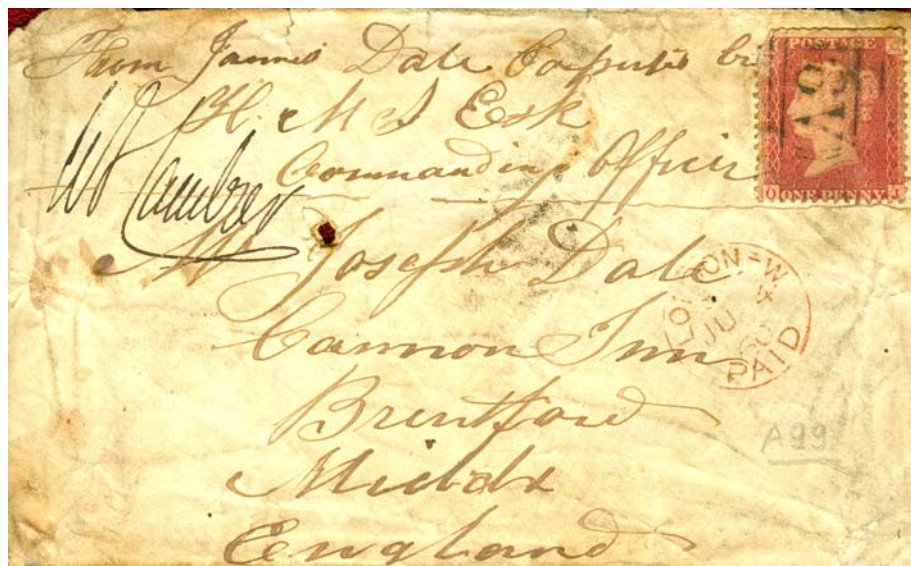 From James Dale
H M S Esk
Commanding Officer
Mr Joseph Dale
Cannon Inn
Brentford
Middx
England
POSTAGE
O ONE PENNY J
LONDON-W
4
JU
60
PAID
A99